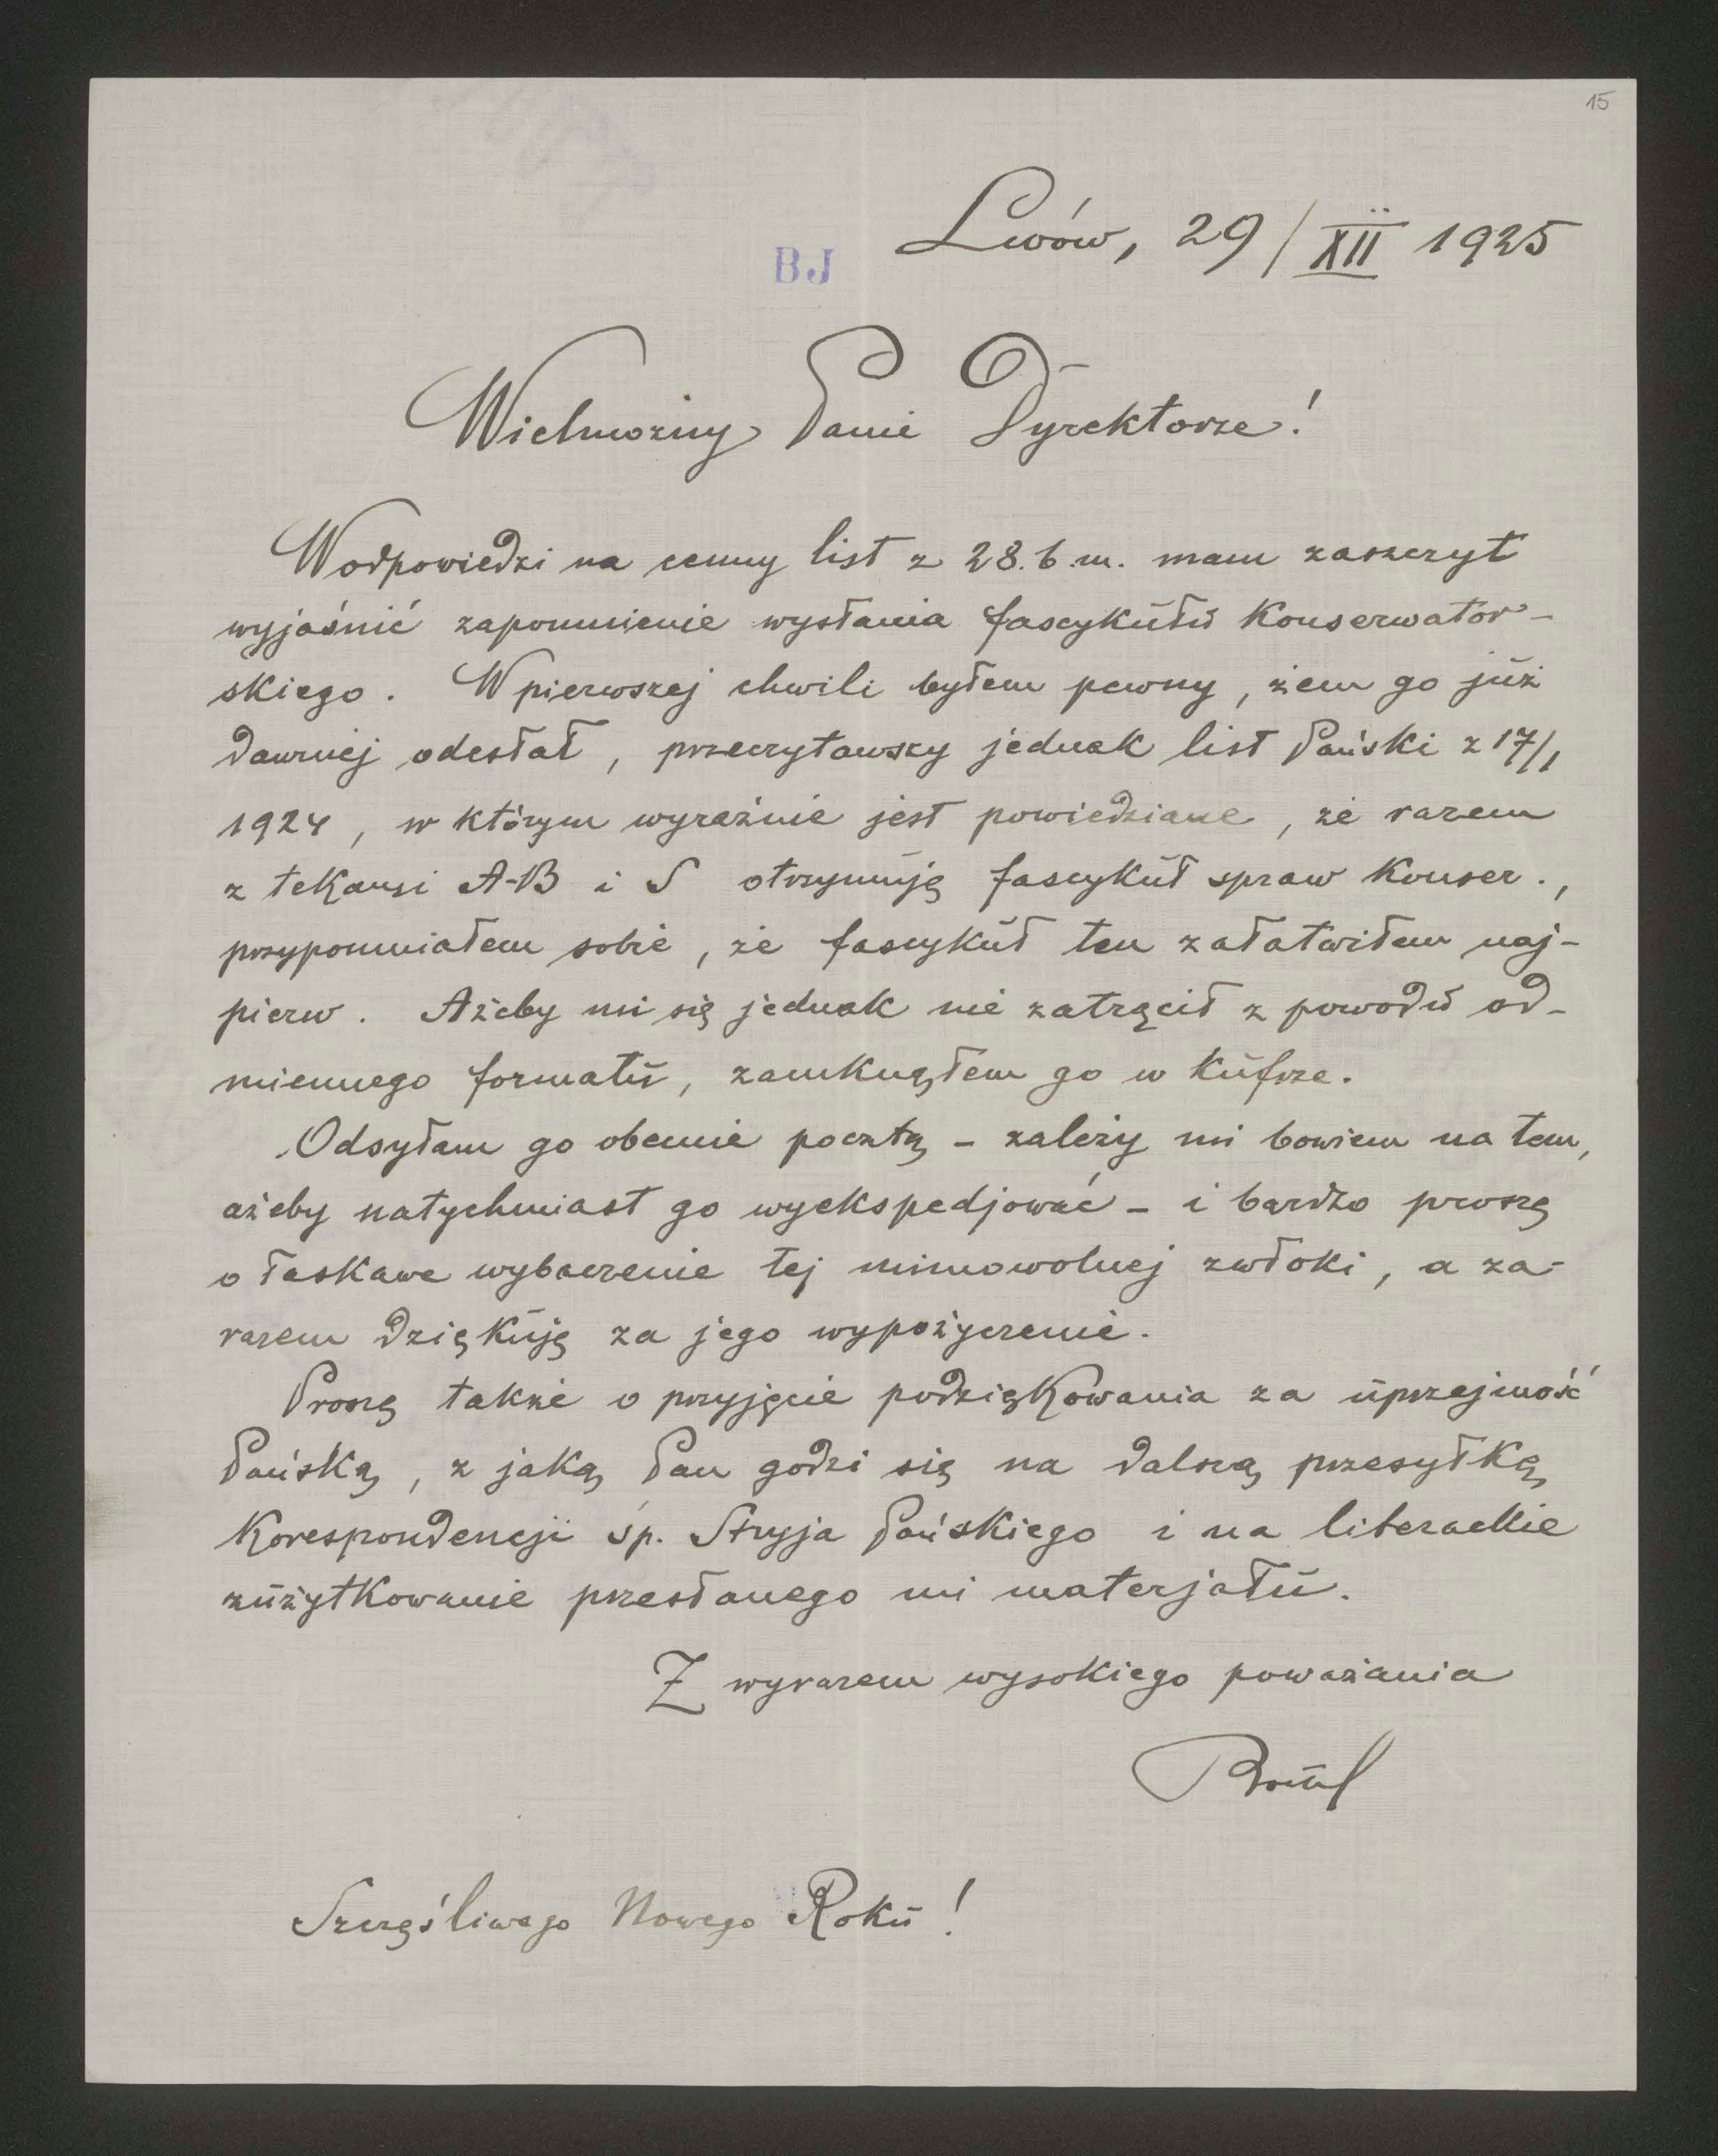 15
Lwów, 29/XII 1925
BJ
Wielmożny Panie Dyrektorze!
W odpowiedzi na cenny list z 28. b. m. mam zaszczyt
wyjaśnić zapomnienie wysłania fascykułu Konserwator-
skiego. W pierwszej chwili byłem pewny, żem go już
dawniej odesłał, przeczytawszy jednak list Pański z 17/1
1924, w którym wyraźnie jest powiedziane, że razem
z tekami A-B i S otrzymuję fascykuł spraw Konser.,
przypomniałem sobie, że fascykuł ten załatwiłem naj-
pierw. Ażeby mi się jednak nie zatrącił z powodu od-
miennego formatu, zamknąłem go w Kufrze.
Odsyłam go obecnie pocztą - zależy mi bowiem na tem,
ażeby natychmiast go wyekspedjować - i bardzo proszę
o łaskawe wybaczenie tej mimowolnej zwłoki, a za-
razem dziękuję za jego wypożyczenie.
Proszę także o przyjęcie podziękowania za uprzejmość
Pańską, z jaką Pan godzi się na dalszą przesyłkę
Korespondencji śp. Stryja Pańskiego i na literackie
zużytkowanie przesłanego mi materjału.
Z wyrazem wysokiego poważania
Szczęśliwego Nowego Roku!